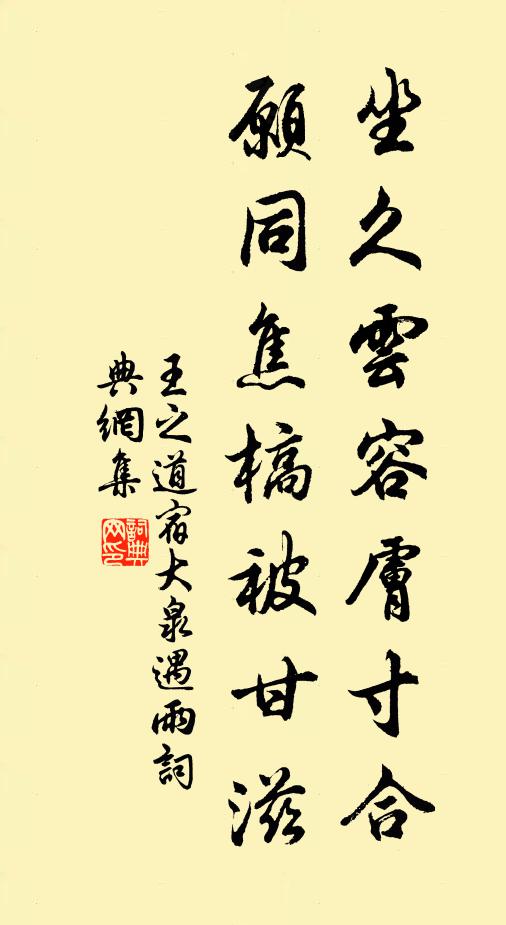 坐久雲容膚寸合
願同焦槁被甘滋
王之道宿大泉遇雨詞
典網集
詞典网印